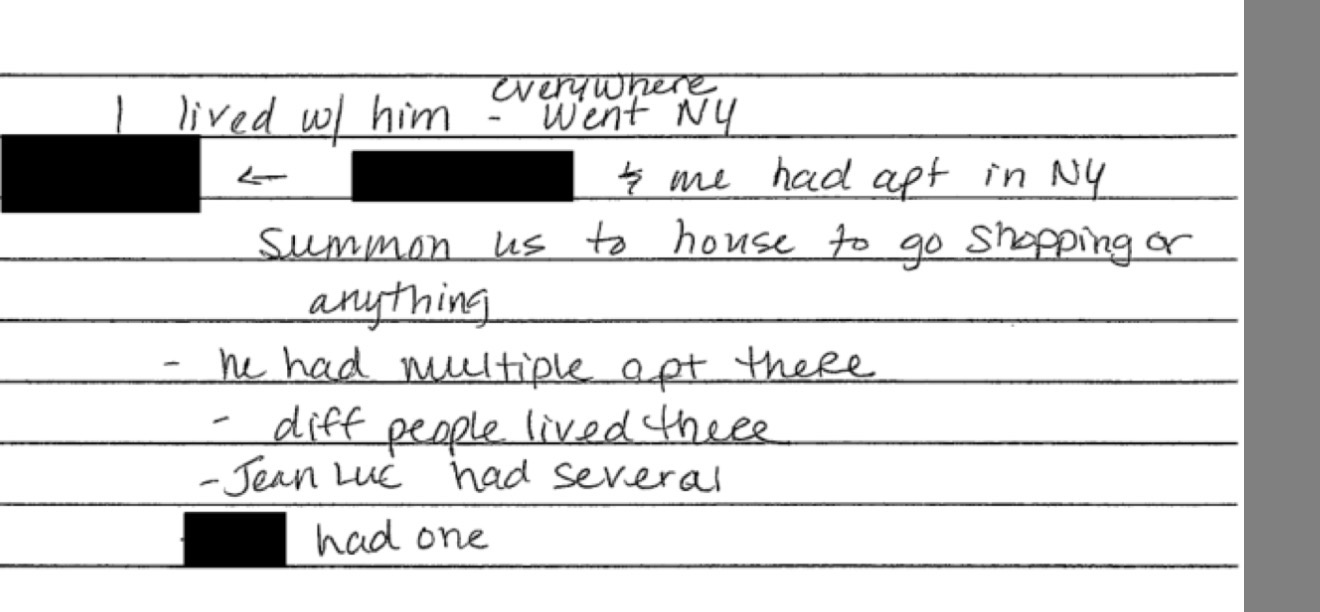 everywhere
I lived w/ him - Went NY
← & me had apt in NY
Summon us to house to go shopping or
anything
- he had multiple apt there
- diff people lived there
- Jean Luc had several
had one